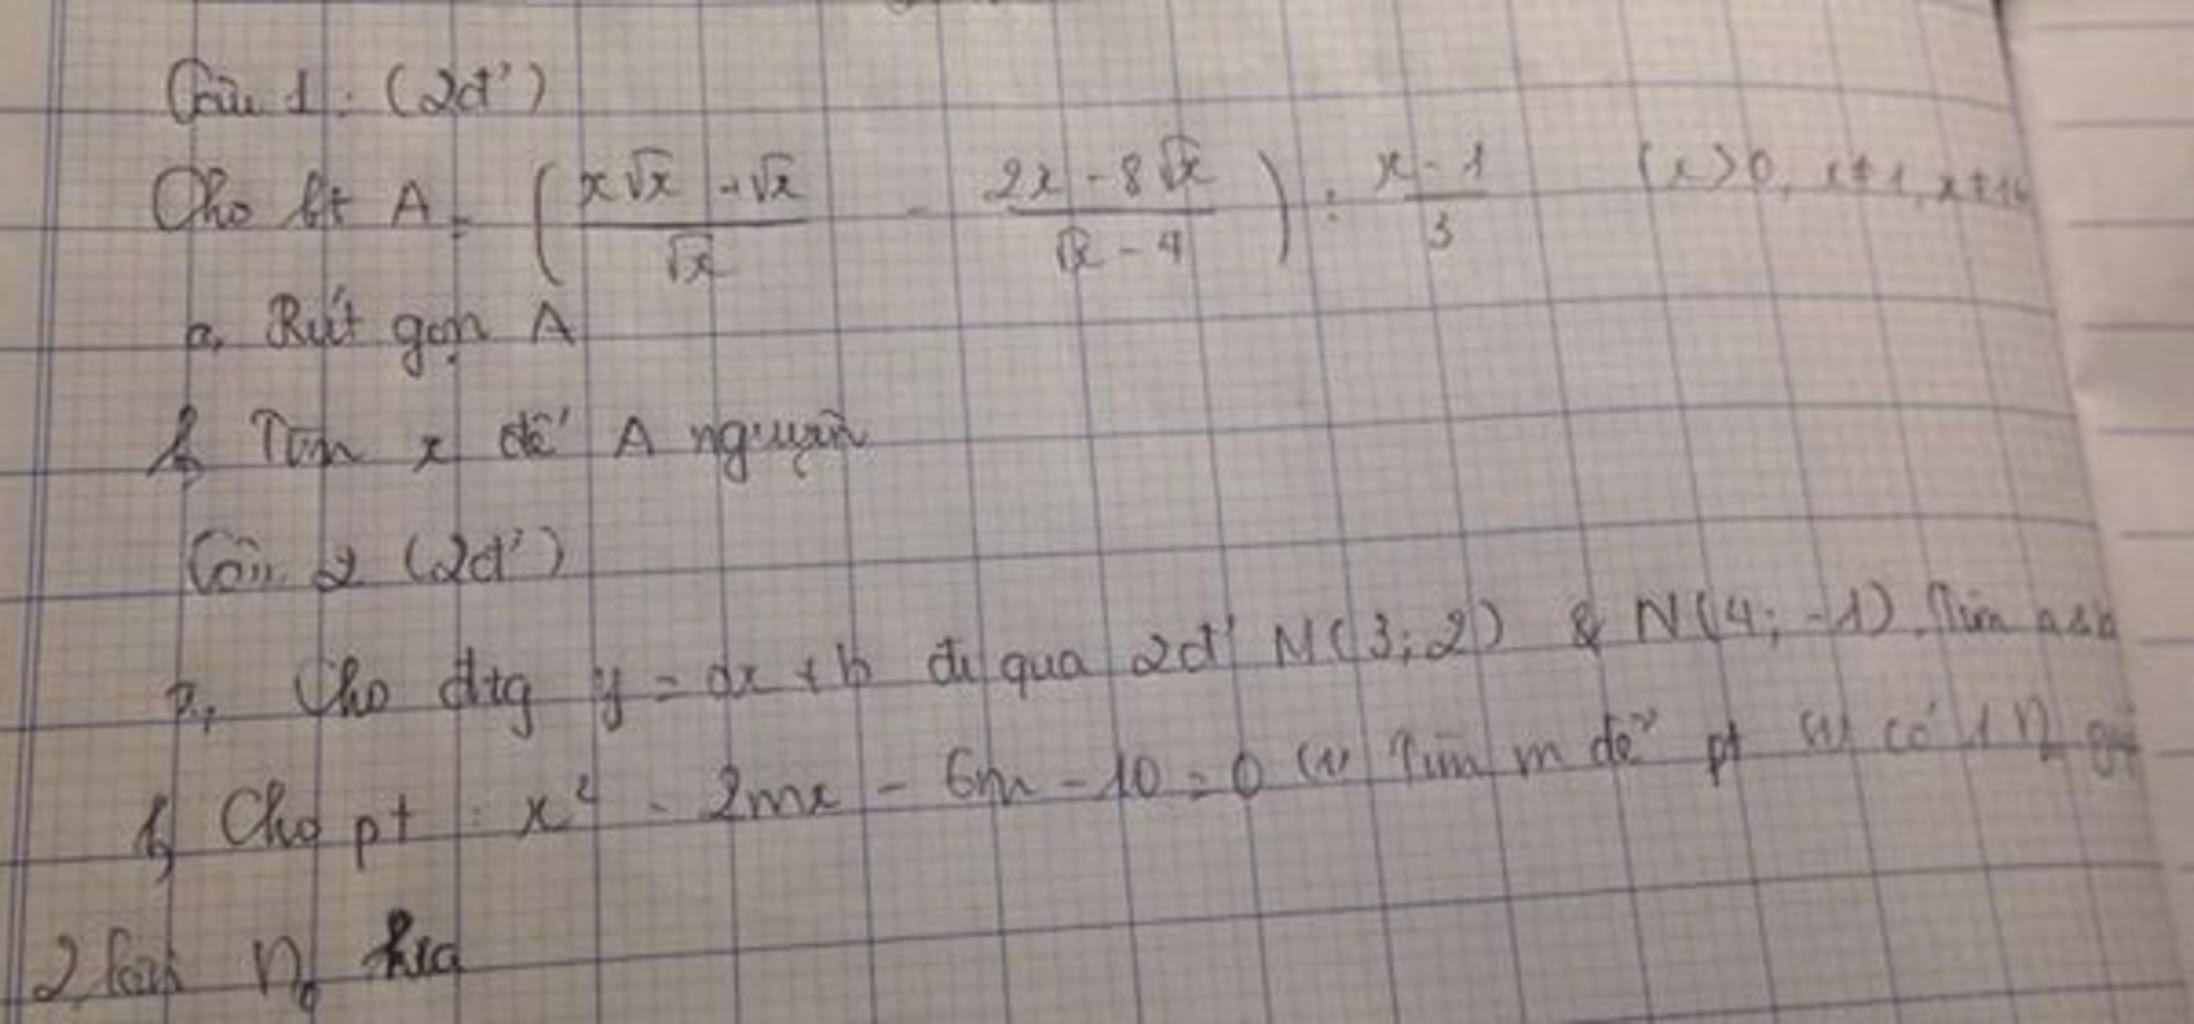 Câu 1: (2đ')
Cho bt A = ( (x√x - √x)/√x - (2x - 8√x)/(√x - 4) ) : (x - 1)/3 (x > 0, x ≠ 1, x ≠ 16
a, Rút gọn A
b, Tìm x để A nguyên
Câu 2 (2đ')
a, Cho đtg y = ax + b đi qua 2đ' M(3; 2) & N(4; -1). Tìm a & b
b, Cho pt: x² - 2mx - 6m - 10 = 0 (1) Tìm m để pt (1) có 1 n₀
2 lần n₀ kia